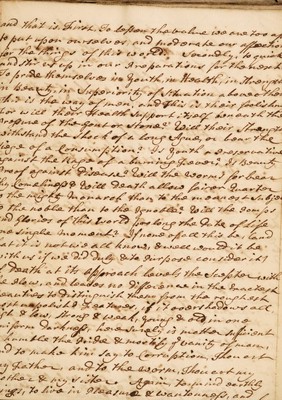 and that is Thirdly To lessen the value we are too apt
to put upon ourselves, and moderate our affections
for the things of this World. Secondly, to quicken
and stir us up in our preparations for the next
To pride themselves in youth, in Health, in strength
in beauty, in Superiority of situation above others
this is the way of men, and this is their foolishness
For will their Health Support itself beneath the
Torture of the Gout or Stone? Will their Strength
withstand the shock of a Languor, or bear the
Siege of a Consumption? Is Youth a Guarantee
against the Rage of a burning Fever? Is Beauty
Proof against disease? Will the Worms forbear
thy Comeliness? Will Death allow fairer Quarter
to the mighty Monarch than to the meanest Subject
to the Noble than to the Ignoble? Will the pomps
and Glories of this World prolong the date of Life
one single moment? None of all this he can
that is not use all know, & well would it be
with us if we did duly & to purpose consider it
Death at its approach levels the Scepter with
the Plow, and leaves no difference in the exactest
Vanities to distinguish them from the highest
it overshadows all,
high & low, strong & weak, young & old in one
uniform darkness, here surely is matter sufficient
to humble the Pride & mortify vanity of man
and to make him say to Corruption, Thou art
my father and to the worm, Thou art my
mother & my Sister Again to mind earthly
to live in pleasure & wantonness, and